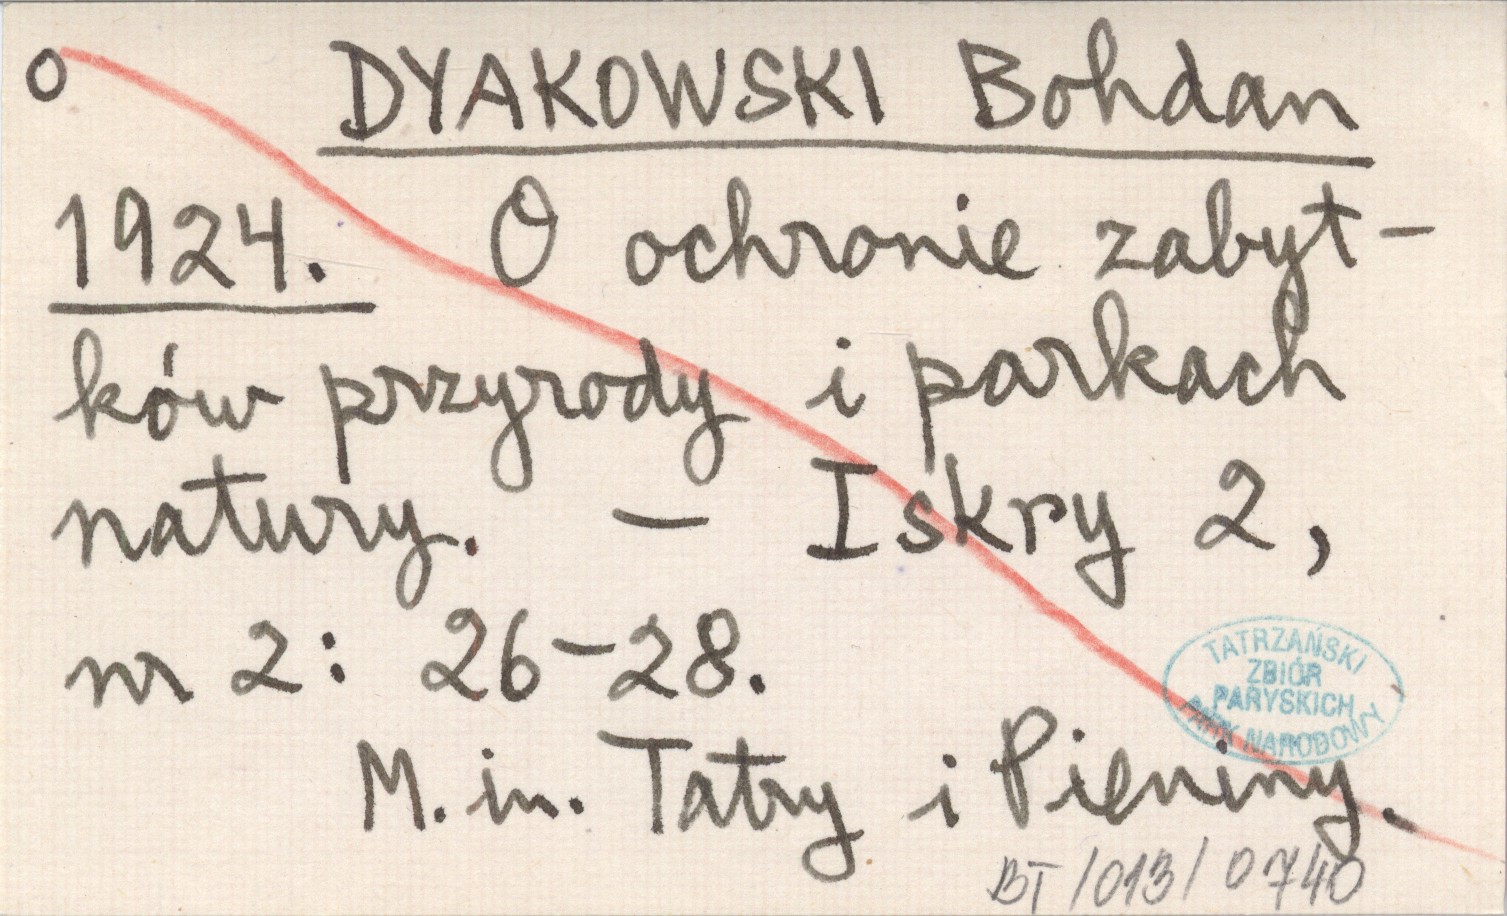 o DYAKOWSKI Bohdan
1924. O ochronie zabyt-
ków przyrody i parkach
natury. – Iskry 2,
nr 2: 26–28.
M. in. Tatry i Pieniny.
TATRZAŃSKI
ZBIÓR
PARYSKICH
PARK NARODOWY
BT/013/0740